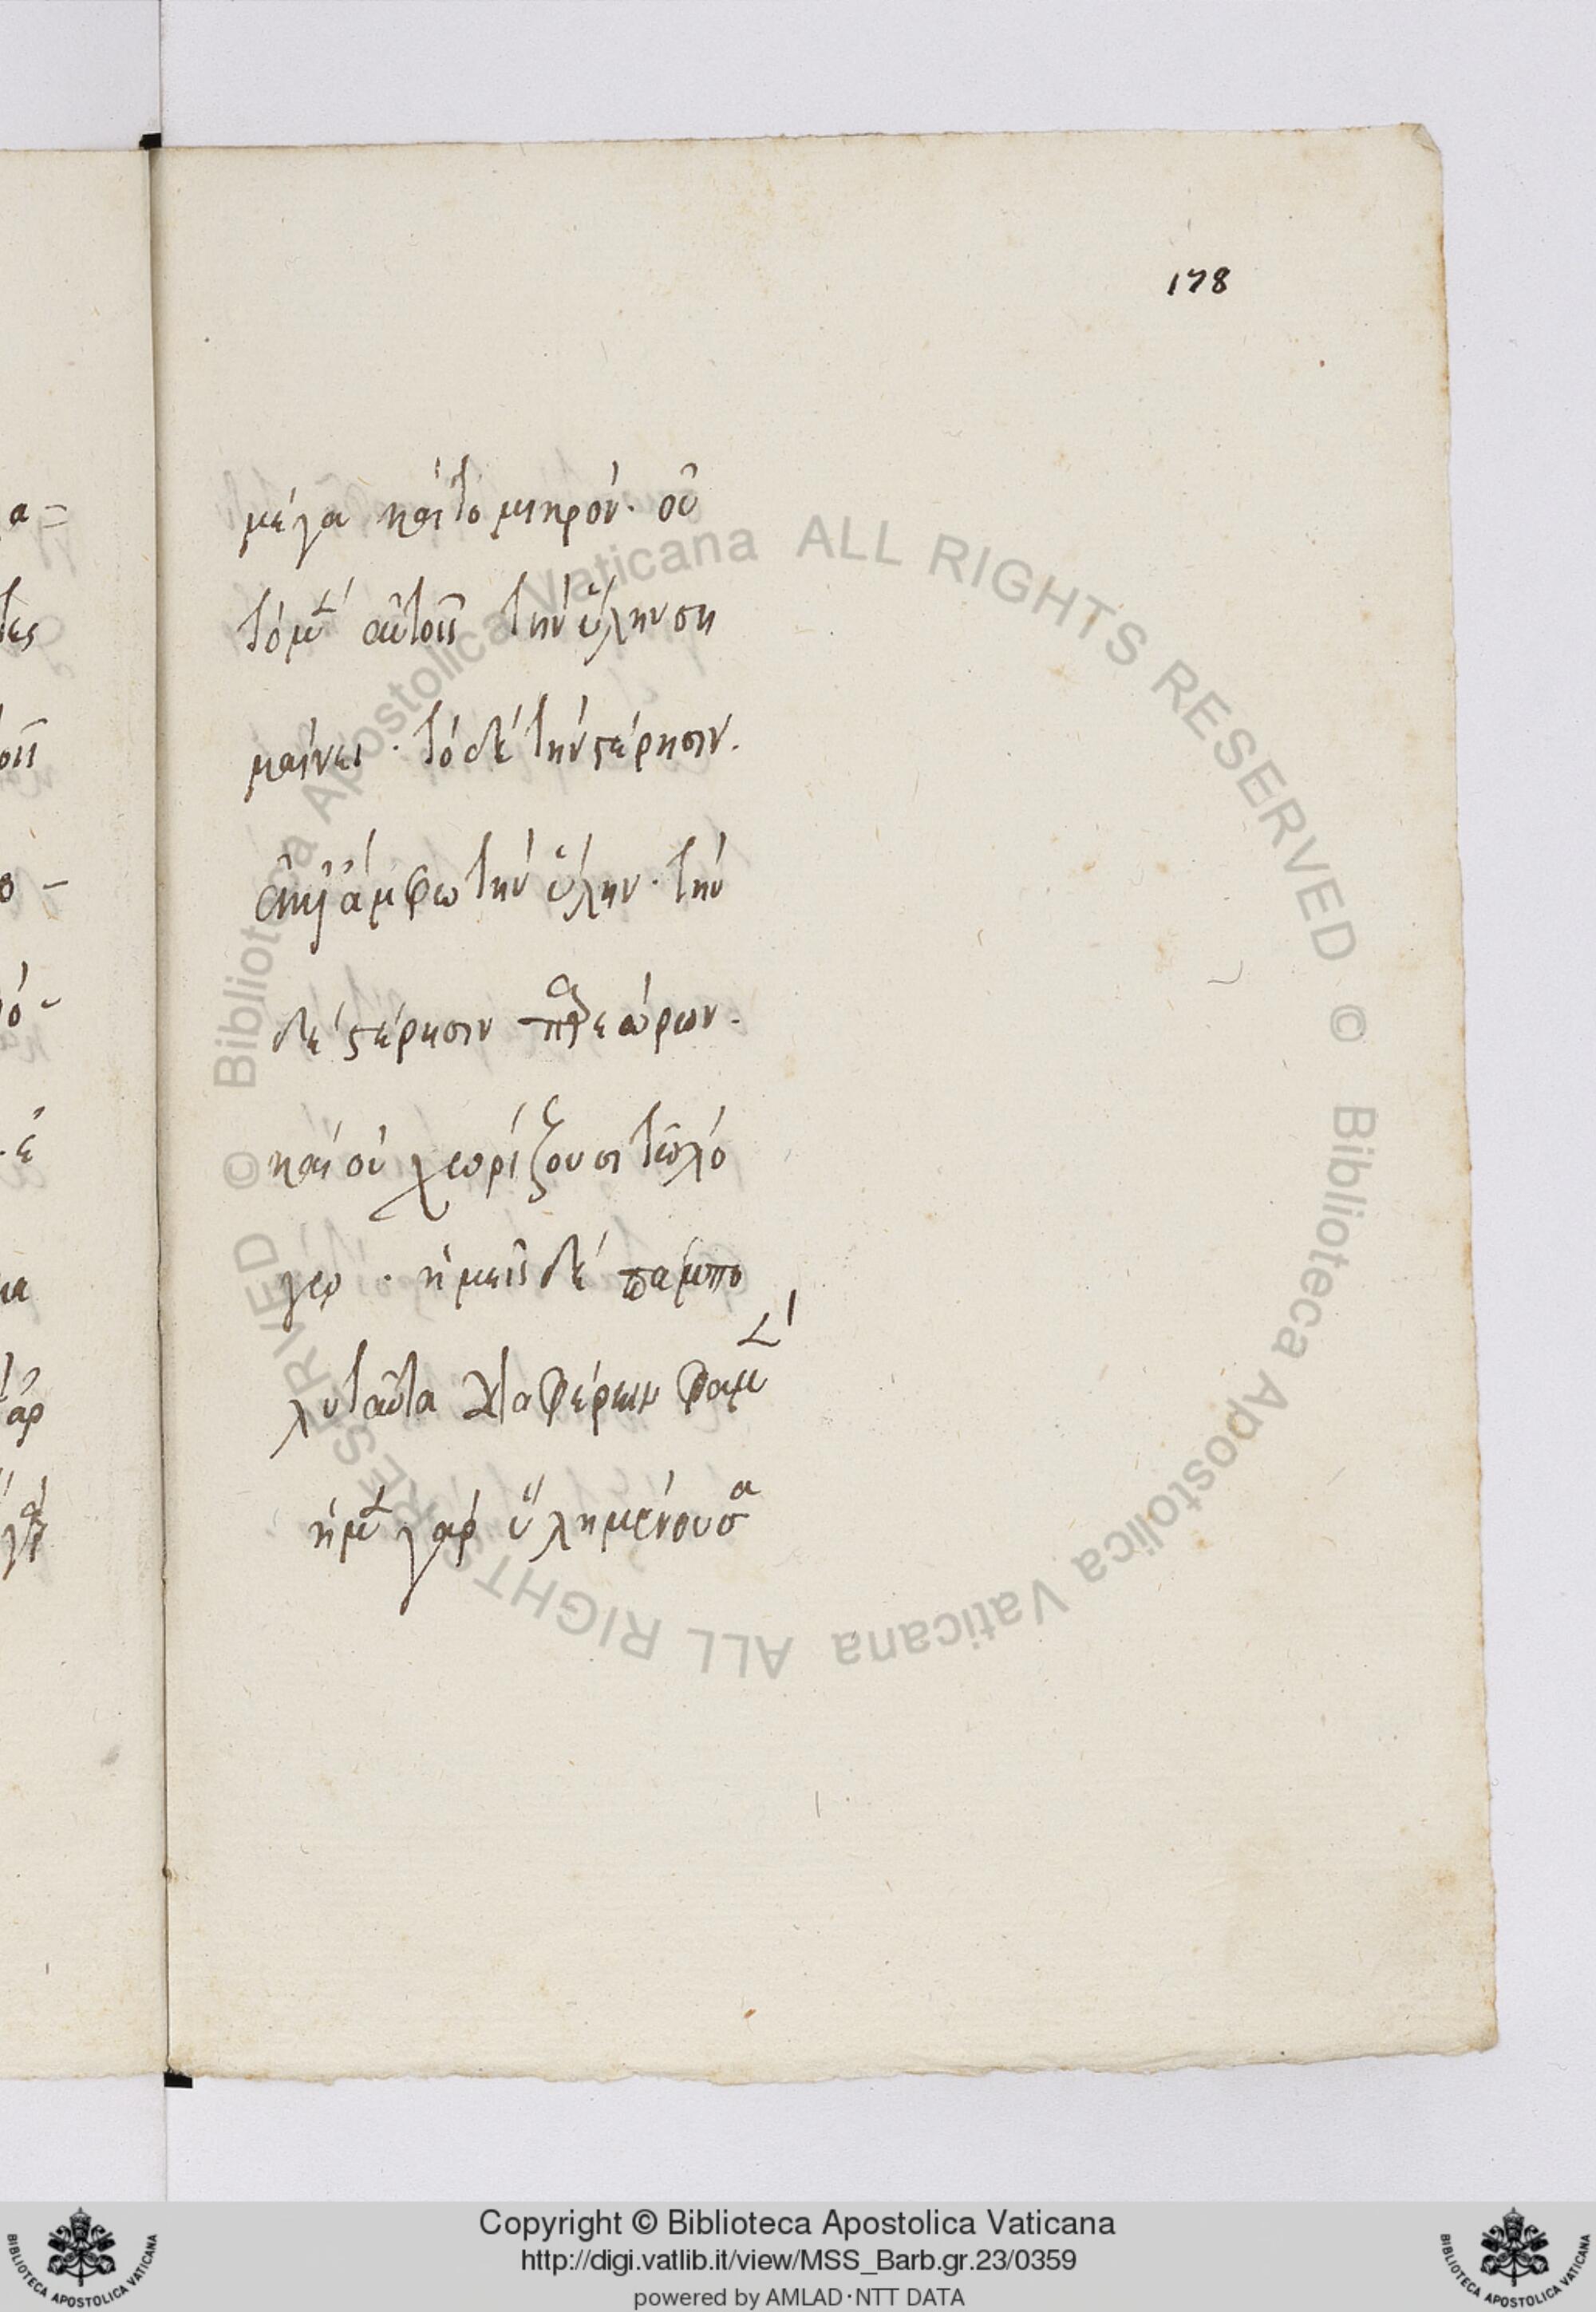 178
μέγα καὶ το μικρόν. οὐ
τὸ μὲν αὐτοῖς τὴν ὕλην ση
μαίνει. τὸ δὲ τὴν στέρησιν.
ἄμφω τὴν ὕλην. τὴν
δὲ στέρησιν παρεώρων.
καὶ οὐ χωρίζουσι τῶ λό
γω. ἡμεῖς δὲ πάμπο
λυ ταῦτα διαφέρειν φαμὲν
ἡ μὲν γὰρ ὕλη μένουσα
α=
τες
οις
ο-
ό-
έ
Copyright © Biblioteca Apostolica Vaticana
http://digi.vatlib.it/view/MSS_Barb.gr.23/0359
powered by AMLAD·NTT DATA
BIBLIOTECA APOSTOLICA VATICANA
BIBLIOTECA APOSTOLICA VATICANA
© Biblioteca Apostolica Vaticana ALL RIGHTS RESERVED © Biblioteca Apostolica Vaticana ALL RIGHTS RESERVED